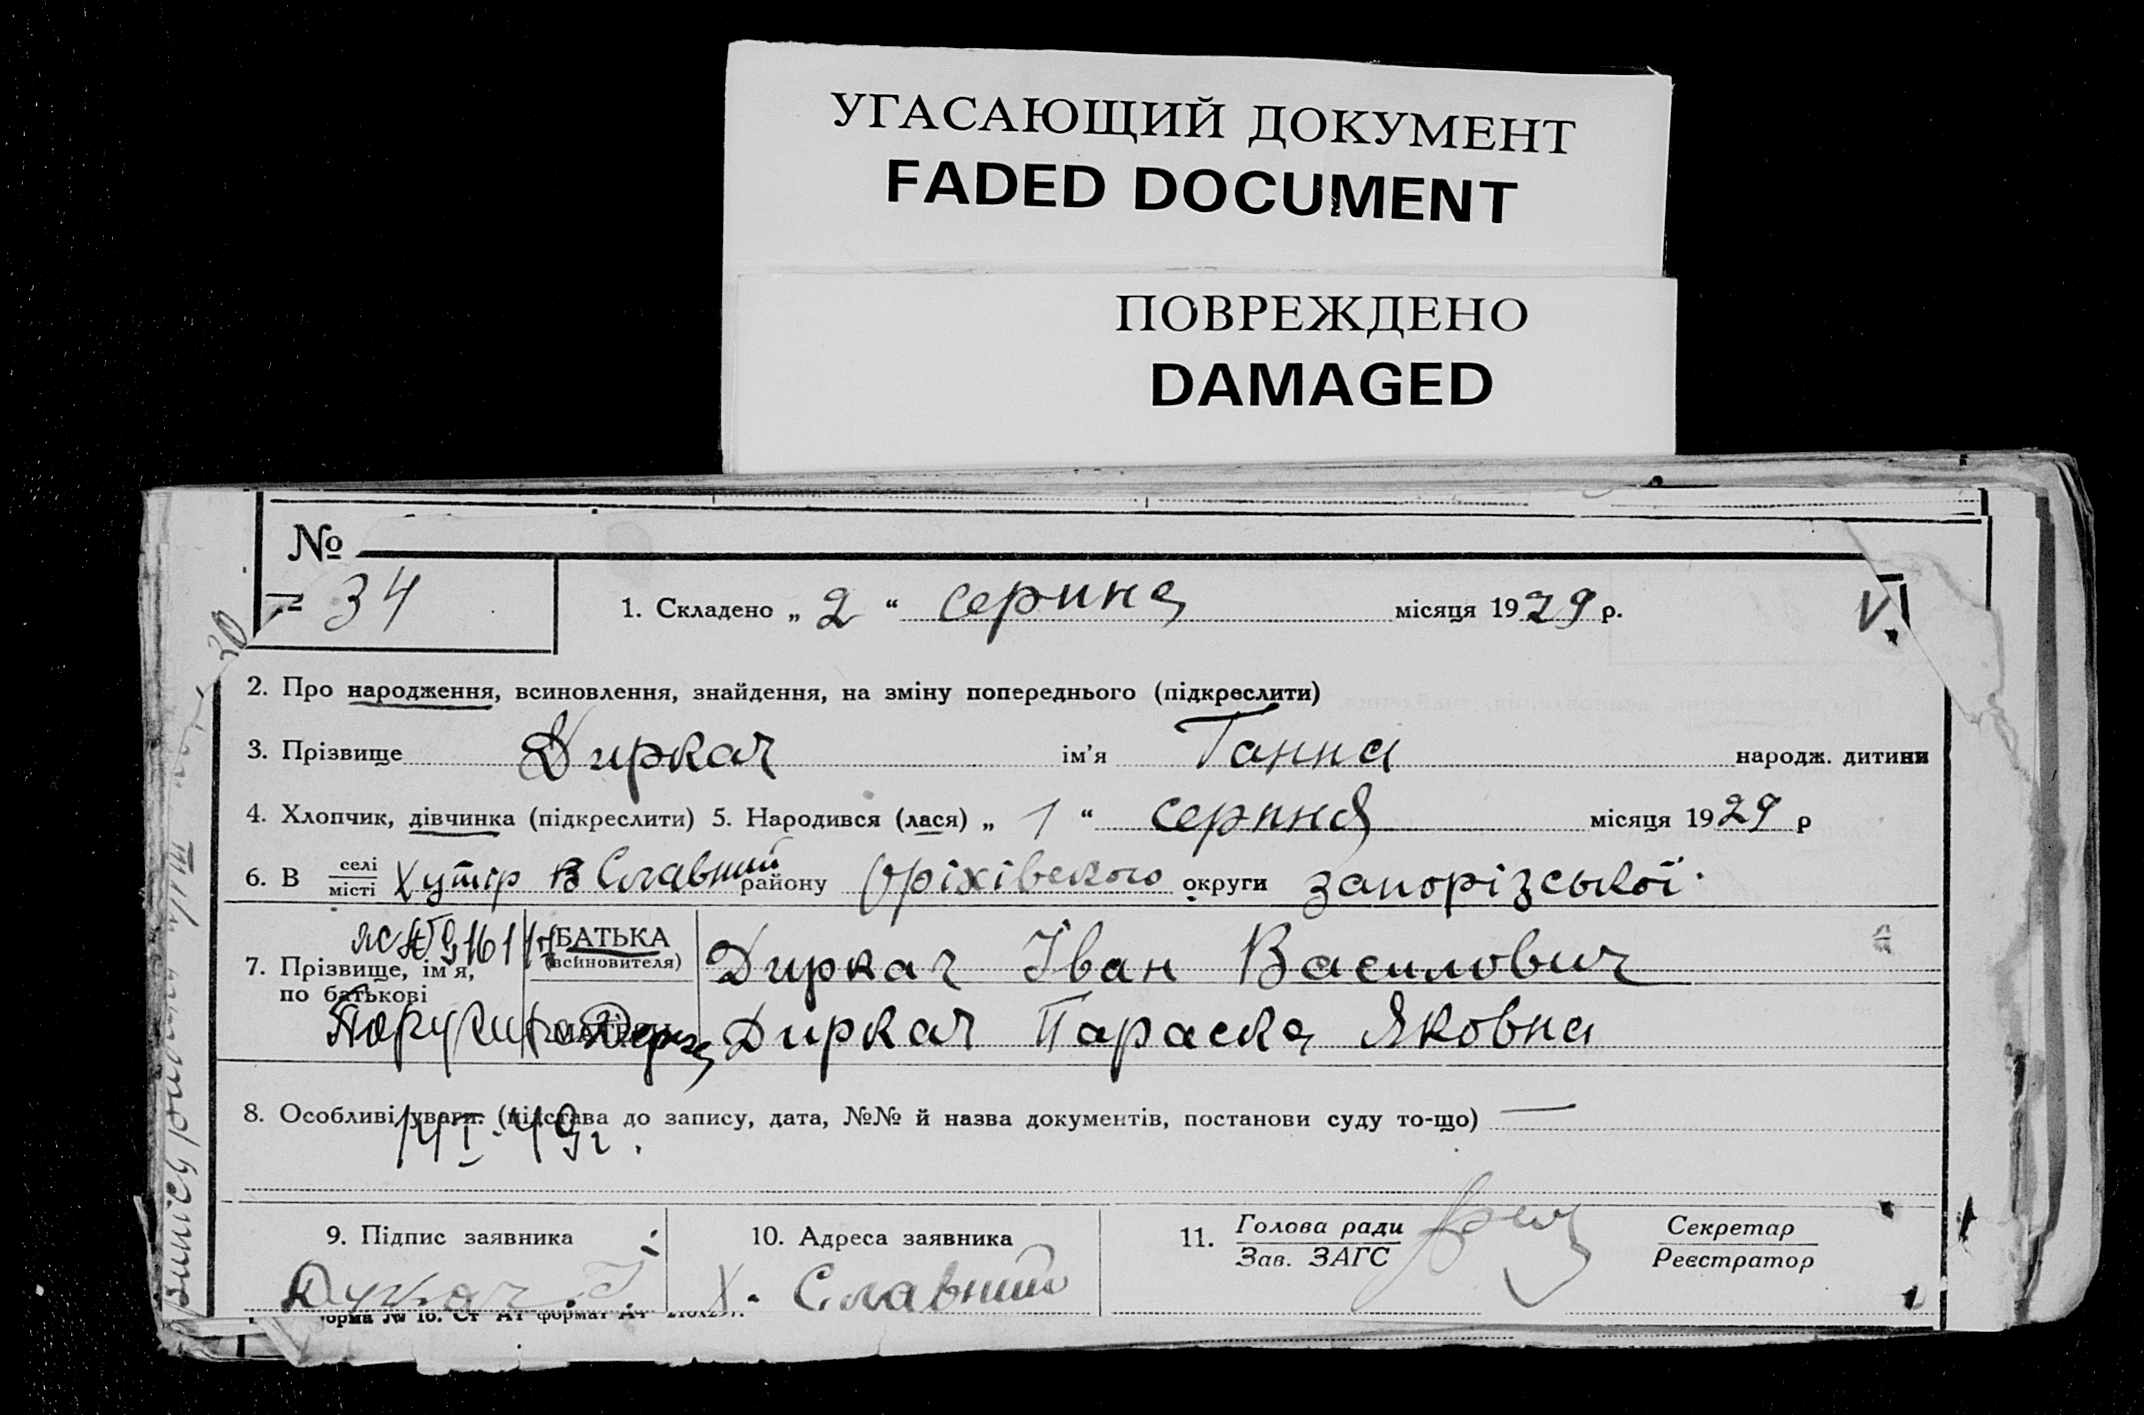 УГАСАЮЩИЙ ДОКУМЕНТ
FADED DOCUMENT
ПОВРЕЖДЕНО
DAMAGED
№
34
1. Складено „ 2 “ серпня місяця 1929 р.
V
30
2. Про народження, всиновлення, знайдення, на зміну попереднього (підкреслити)
3. Прізвище Диркач ім’я Ганна народж. дитини
4. Хлопчик, дівчинка (підкреслити) 5. Народився (лася) „ 1 “ серпня місяця 1929 р
6. В селі місті Хутір В Славний району Оріхівского округи запорізської
7. Прізвище, ім’я, по батькові
БАТЬКА (всиновителя) Диркач Іван Василович
Диркач Параска Яковна
8. Особливі уваги. (підстава до запису, дата, №№ й назва документів, постанови суду то-що) —
14 I 49 г.
9. Підпис заявника
10. Адреса заявника
х. Славний
11. Голова ради
Зав. ЗАГС
Секретар
Реєстратор